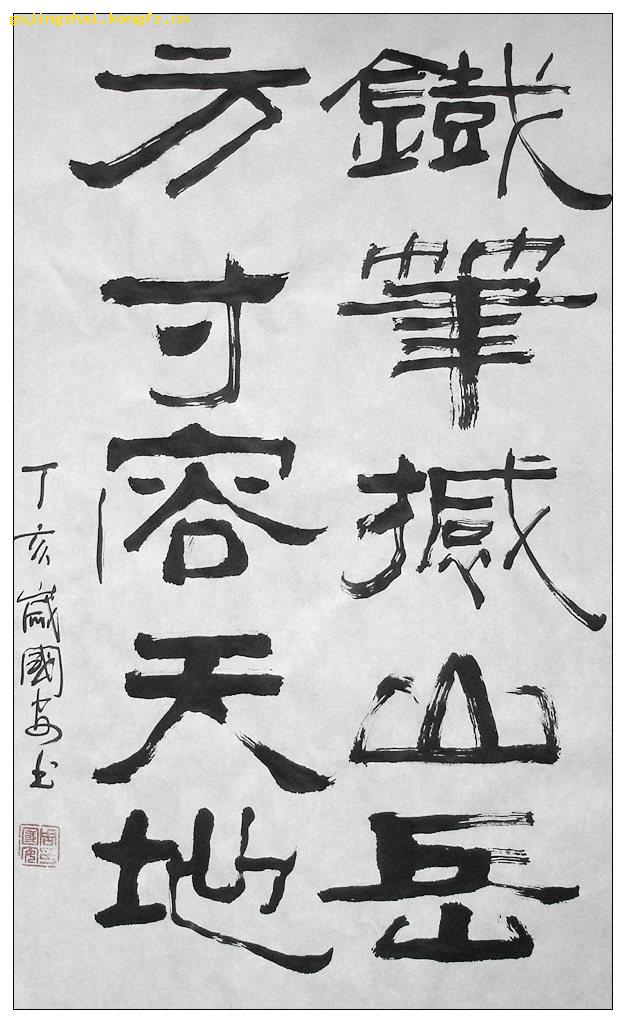 gujingzhai.kongfz.cn
鐵筆撼山岳
方寸容天地
丁亥歲國安书